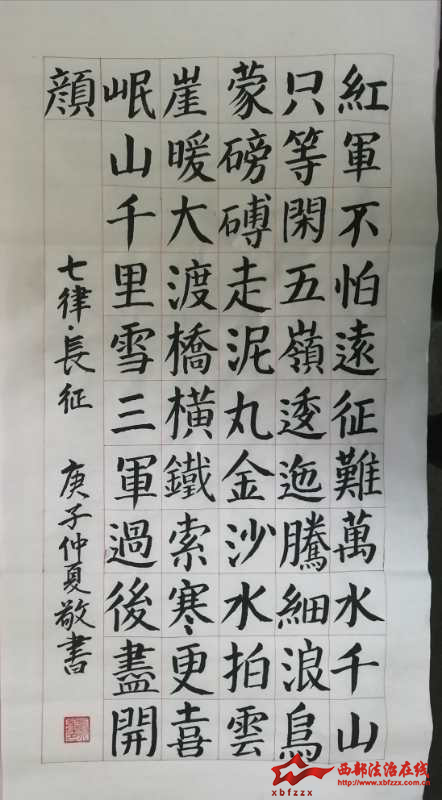 紅軍不怕遠征難萬水千山
只等閑五嶺逶迤騰細浪烏
蒙磅磗走泥丸金沙水拍雲
崖暖大渡橋橫鐵索寒更喜
岷山千里雪三軍過後盡開
顔
七律·長征 庚子仲夏敬書
西部法治在线
xbfzzx www.xbfzzx.com